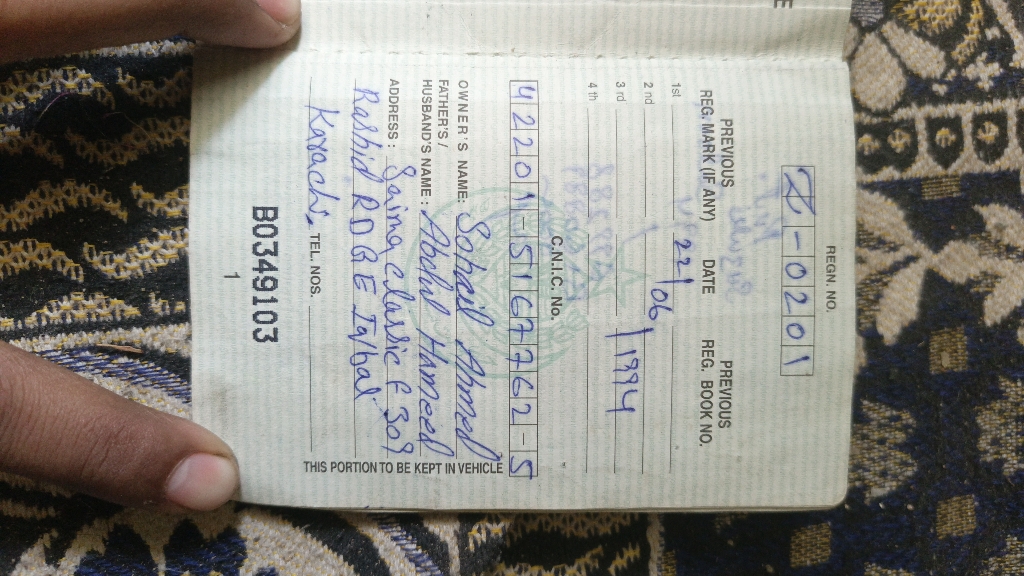 REGN. NO.
Z-0201
PREVIOUS REG. MARK (IF ANY) DATE PREVIOUS REG. BOOK NO.
1st 22/06/1994
2nd
3rd
4th
C.N.I.C. No.
42201-5167762-5
OWNER'S NAME: Sohail Ahmed
FATHER'S /
HUSBAND'S NAME: Abdul Hameed
ADDRESS: Saima Classic F 309
Rashid RD G E Iqbal
Karachi TEL. NOS.
THIS PORTION TO BE KEPT IN VEHICLE
B0349103
1